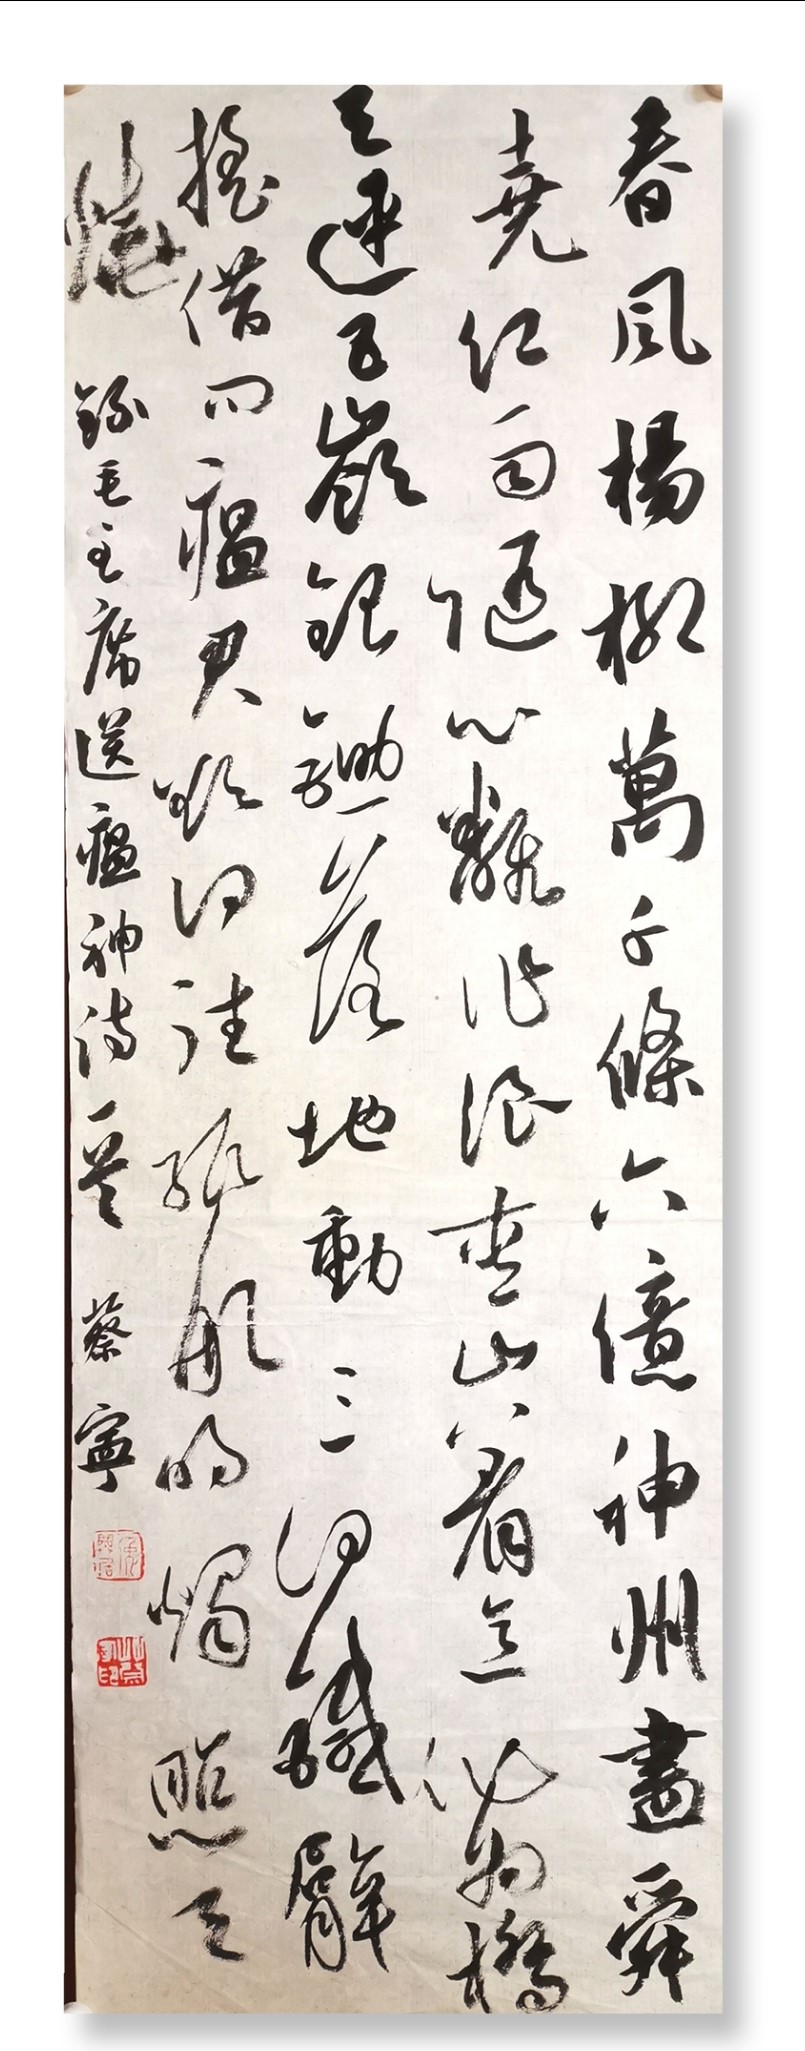 春風楊柳萬千條六億神州盡舜
堯紅雨隨心翻作浪青山着意化為橋
天連五嶺銀鋤落地動三河鐵臂
搖借問瘟君欲何往紙船明燭照天
燒 錄毛主席送瘟神詩一首 蔡寧